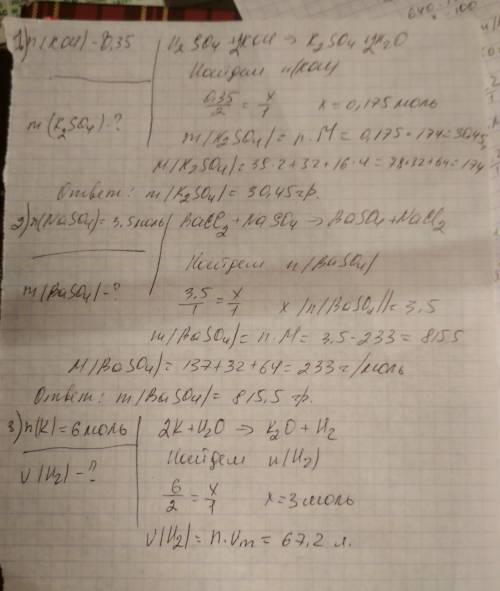 1) n(KOH) = 0,35
H2SO4 + 2KOH → K2SO4 + 2H2O
Найдем n(KOH)
0,35/2 = x/1 x = 0,175 моль
m(K2SO4) - ?
m(K2SO4) = n · M = 0,175 · 174 = 30,45
M(K2SO4) = 39·2 + 32 + 16·4 = 78 + 32 + 64 = 174
Ответ: m(K2SO4) = 30,45 гр.
2) n(NaSO4) = 3,5 моль
BaCl2 + NaSO4 → BaSO4 + NaCl2
Найдем n(BaSO4)
m(BaSO4) - ?
3,5/1 = x/1 x(n(BaSO4)) = 3,5
m(BaSO4) = n · M = 3,5 · 233 = 815,5
M(BaSO4) = 137 + 32 + 64 = 233 г/моль
Ответ: m(BaSO4) = 815,5 гр.
3) n(K) = 6 моль
2K + H2O → K2O + H2
Найдем n(H2)
V(H2) - ?
6/2 = x/1 x = 3 моль
V(H2) = n · Vm = 67,2 л.